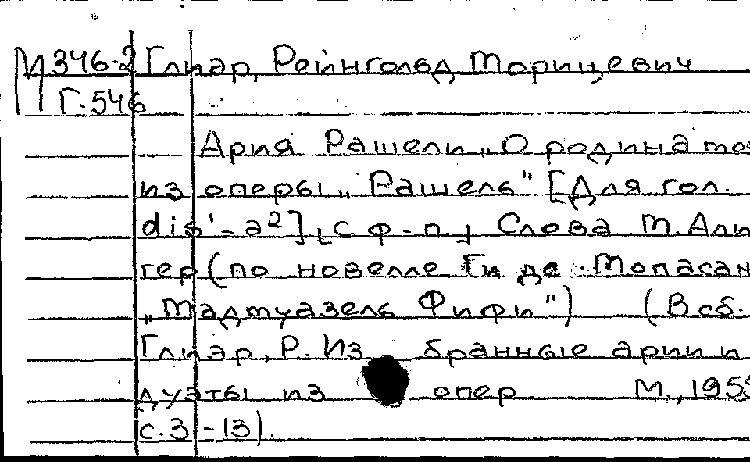 М346.2 Глиэр, Рейнгольд Морицевич
Г.546
Ария Рашели „О родина
из оперы „Рашель" [Для гол.
dis¹-a²] [с ф-п] Слова М. Али
гер (по новелле Ги де Мопасан
„Мадмуазель Фифи") (В сб.
Глиэр, Р. Избранные арии и
дуэты из опер М., 1955
с.3-13).